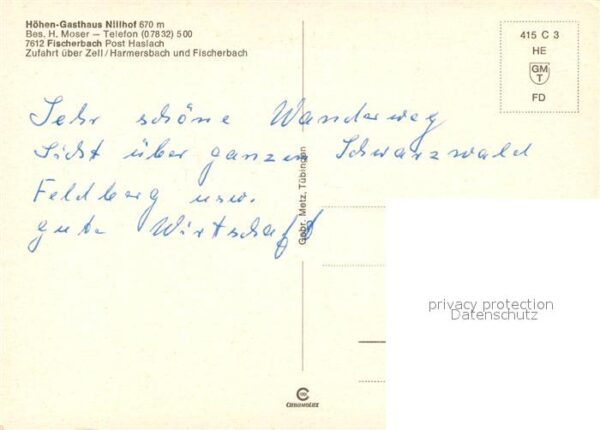 Höhen-Gasthaus Nillhof 670 m
Bes. H. Moser — Telefon (07832) 500
7612 Fischerbach Post Haslach
Zufahrt über Zell/Harmersbach und Fischerbach
415 C 3
HE
GM
T
FD
Sehr schöne Wanderweg
Sicht über ganzen Schwarzwald
Feldberg usw.
gute Wirtschaft
Gebr. Metz, Tübingen
privacy protection
Datenschutz
CHROMOLUX